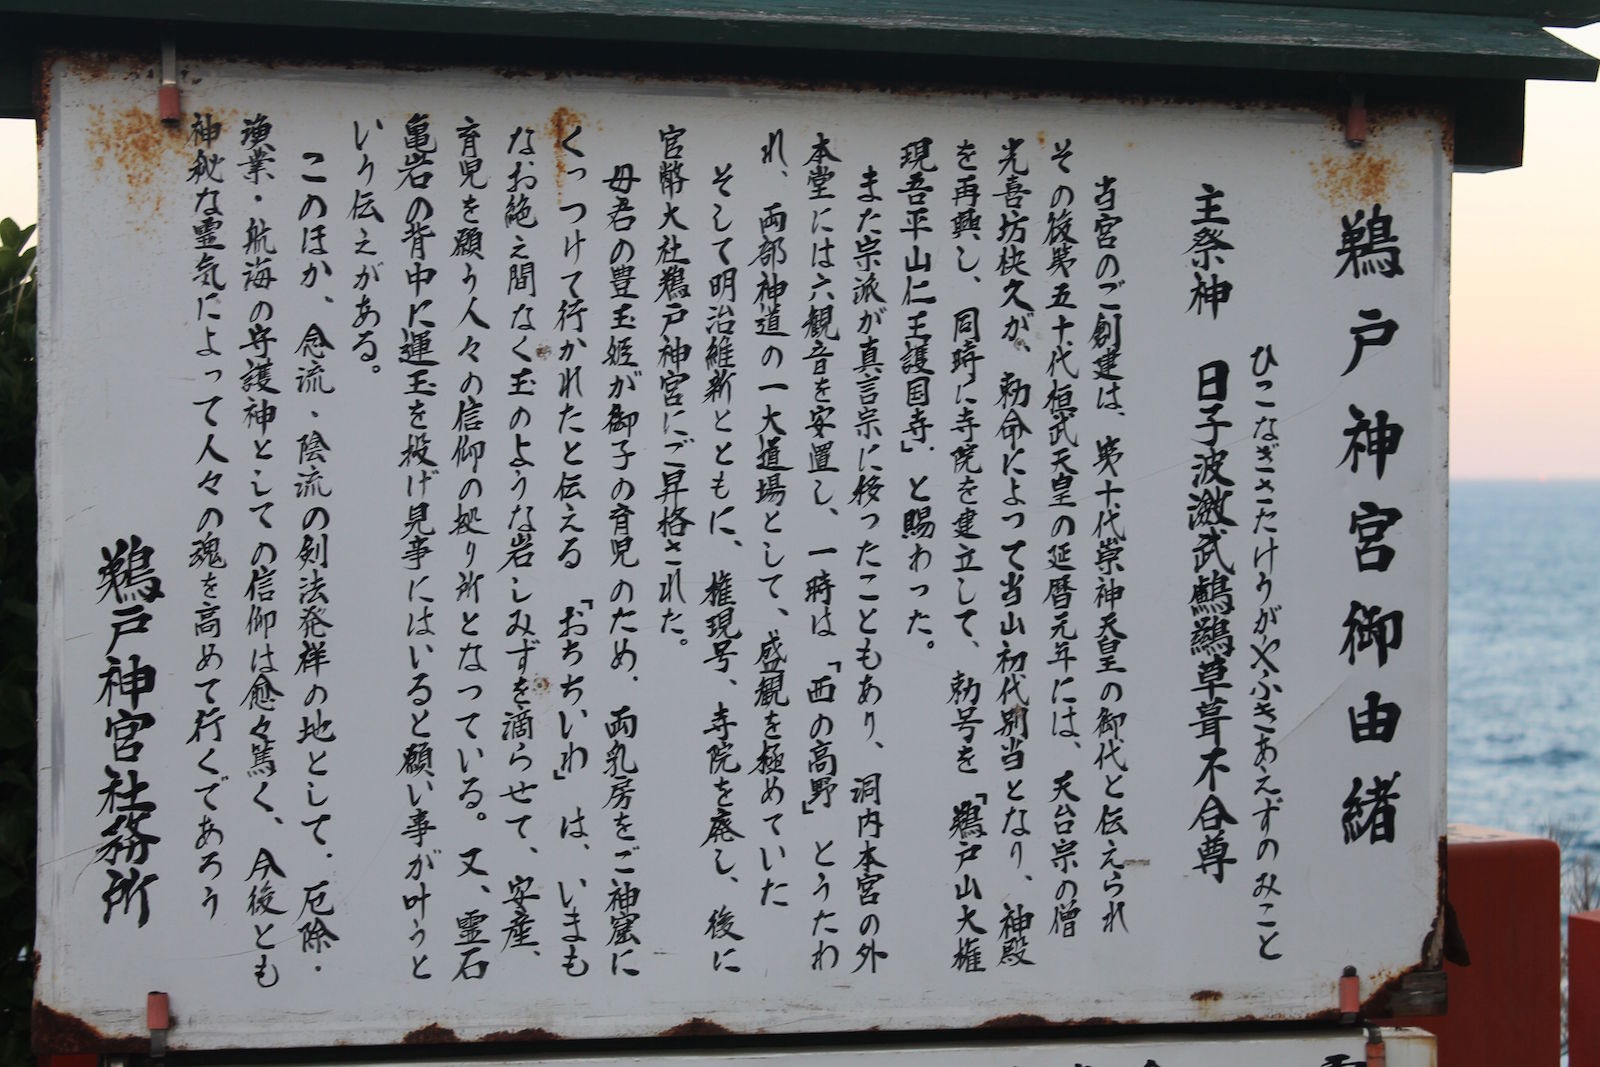 鵜戸神宮御由緒
ひこなぎさたけうがやふきあえずのみこと
主祭神 日子波瀲武鸕鷀草葺不合尊
当宮のご創建は、第十代崇神天皇の御代と伝えられ
その後第五十代桓武天皇の延暦元年には、天台宗の僧
光喜坊快久が、勅命によって当山初代別当となり、神殿
を再興し、同時に寺院を建立して、勅号を「鵜戸山大権
現吾平山仁王護国寺」と賜わった。
また宗派が真言宗に移ったこともあり、洞内本宮の外
本堂には六観音を安置し、一時は「西の高野」とうたわ
れ、両部神道の一大道場として、盛観を極めていた
そして明治維新とともに、権現号、寺院を廃し、後に
官幣大社鵜戸神宮にご昇格された。
母君の豊玉姫が御子の育児のため、両乳房をご神窟に
くっつけて行かれたと伝える「おちちいわ」は、いまも
なお絶え間なく玉のような岩しみずを滴らせて、安産、
育児を願う人々の信仰の拠り所となっている。又、霊石
亀岩の背中に運玉を投げ見事にはいると願い事が叶うと
いう伝えがある。
このほか、念流、陰流の剣法発祥の地として、厄除・
漁業・航海の守護神としての信仰は愈々篤く、今後とも
神秘な霊気によって人々の魂を高めて行くであろう
鵜戸神宮社務所